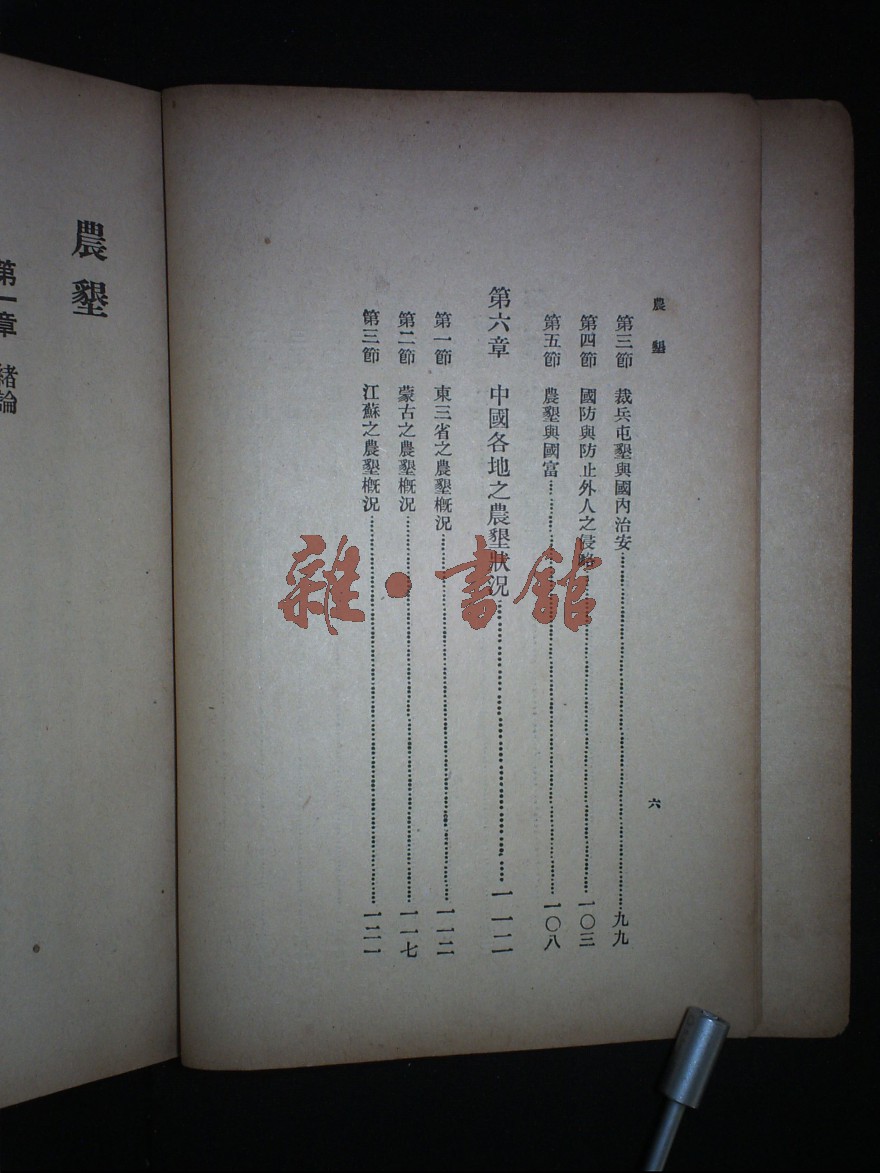 農墾
第三節 裁兵屯墾與國內治安……九九
第四節 國防與防止外人之侵略……一〇三
第五節 農墾與國富……一〇八
第六章 中國各地之農墾狀況……一一二
第一節 東三省之農墾概況……一一二
第二節 蒙古之農墾概況……一一七
第三節 江蘇之農墾概況……一二一
六
農墾
第一章 緒論
雜·書館